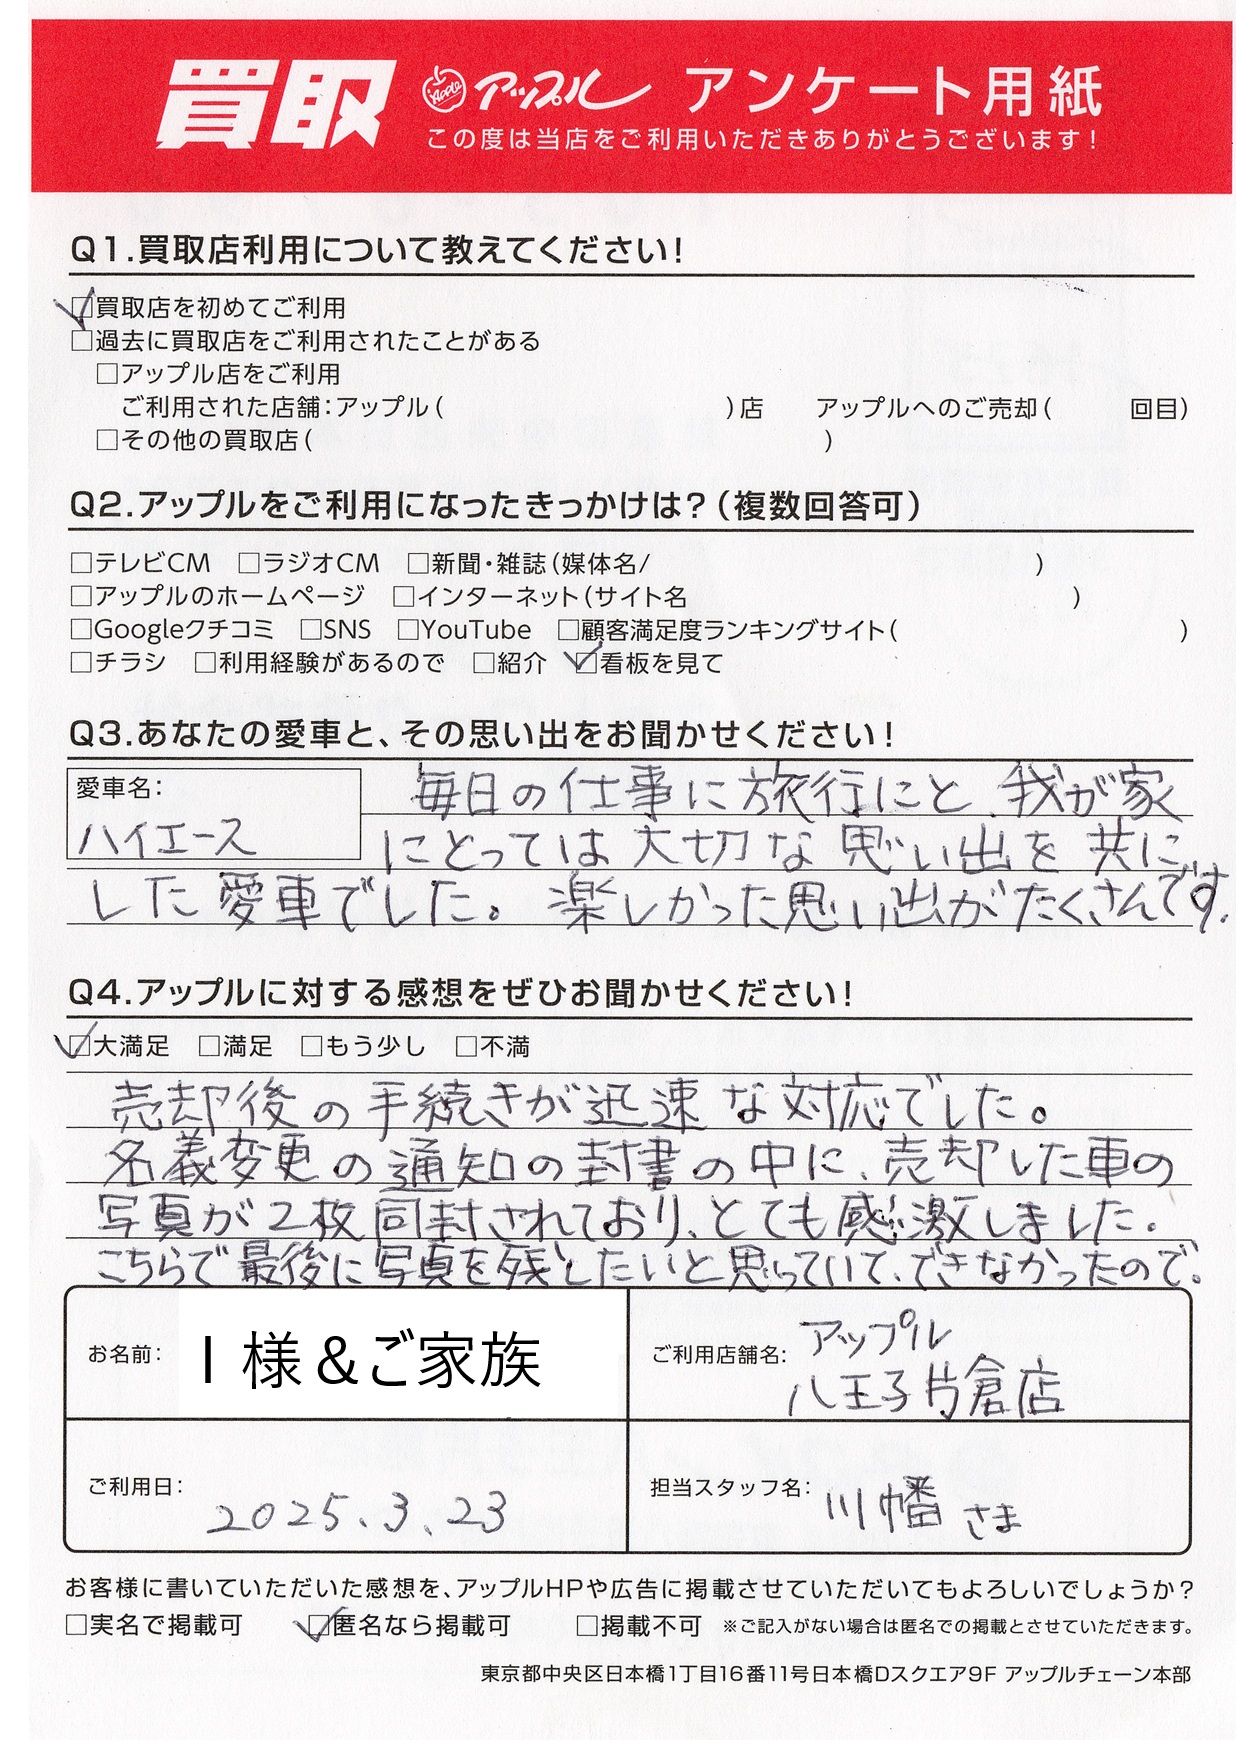 買取 Apple アップル アンケート用紙
この度は当店をご利用いただきありがとうございます!
Q1.買取店利用について教えてください!
☑買取店を初めてご利用
□過去に買取店をご利用されたことがある
□アップル店をご利用
ご利用された店舗:アップル( )店 アップルへのご売却( 回目)
□その他の買取店( )
Q2.アップルをご利用になったきっかけは?(複数回答可)
□テレビCM □ラジオCM □新聞・雑誌(媒体名/ )
□アップルのホームページ □インターネット(サイト名 )
□Googleクチコミ □SNS □YouTube □顧客満足度ランキングサイト( )
□チラシ □利用経験があるので □紹介 ☑看板を見て
Q3.あなたの愛車と、その思い出をお聞かせください!
愛車名:
ハイエース
毎日の仕事に旅行にと、我が家
にとっては大切な思い出を共に
した愛車でした。楽しかった思い出がたくさんです。
Q4.アップルに対する感想をぜひお聞かせください!
☑大満足 □満足 □もう少し □不満
売却後の手続きが迅速な対応でした。
名義変更の通知の封書の中に、売却した車の
写真が2枚同封されており、とても感激しました。
こちらで最後に写真を残したいと思っていて、できなかったので。
お名前: I 様&ご家族
ご利用店舗名: アップル
八王子片倉店
ご利用日: 2025.3.23
担当スタッフ名: 川幡さま
お客様に書いていただいた感想を、アップルHPや広告に掲載させていただいてもよろしいでしょうか?
□実名で掲載可 ☑匿名なら掲載可 □掲載不可 ※ご記入がない場合は匿名での掲載とさせていただきます。
東京都中央区日本橋1丁目16番11号日本橋Dスクエア9F アップルチェーン本部